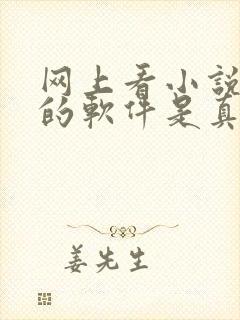 网上看小説
的軟件是真
姜先生